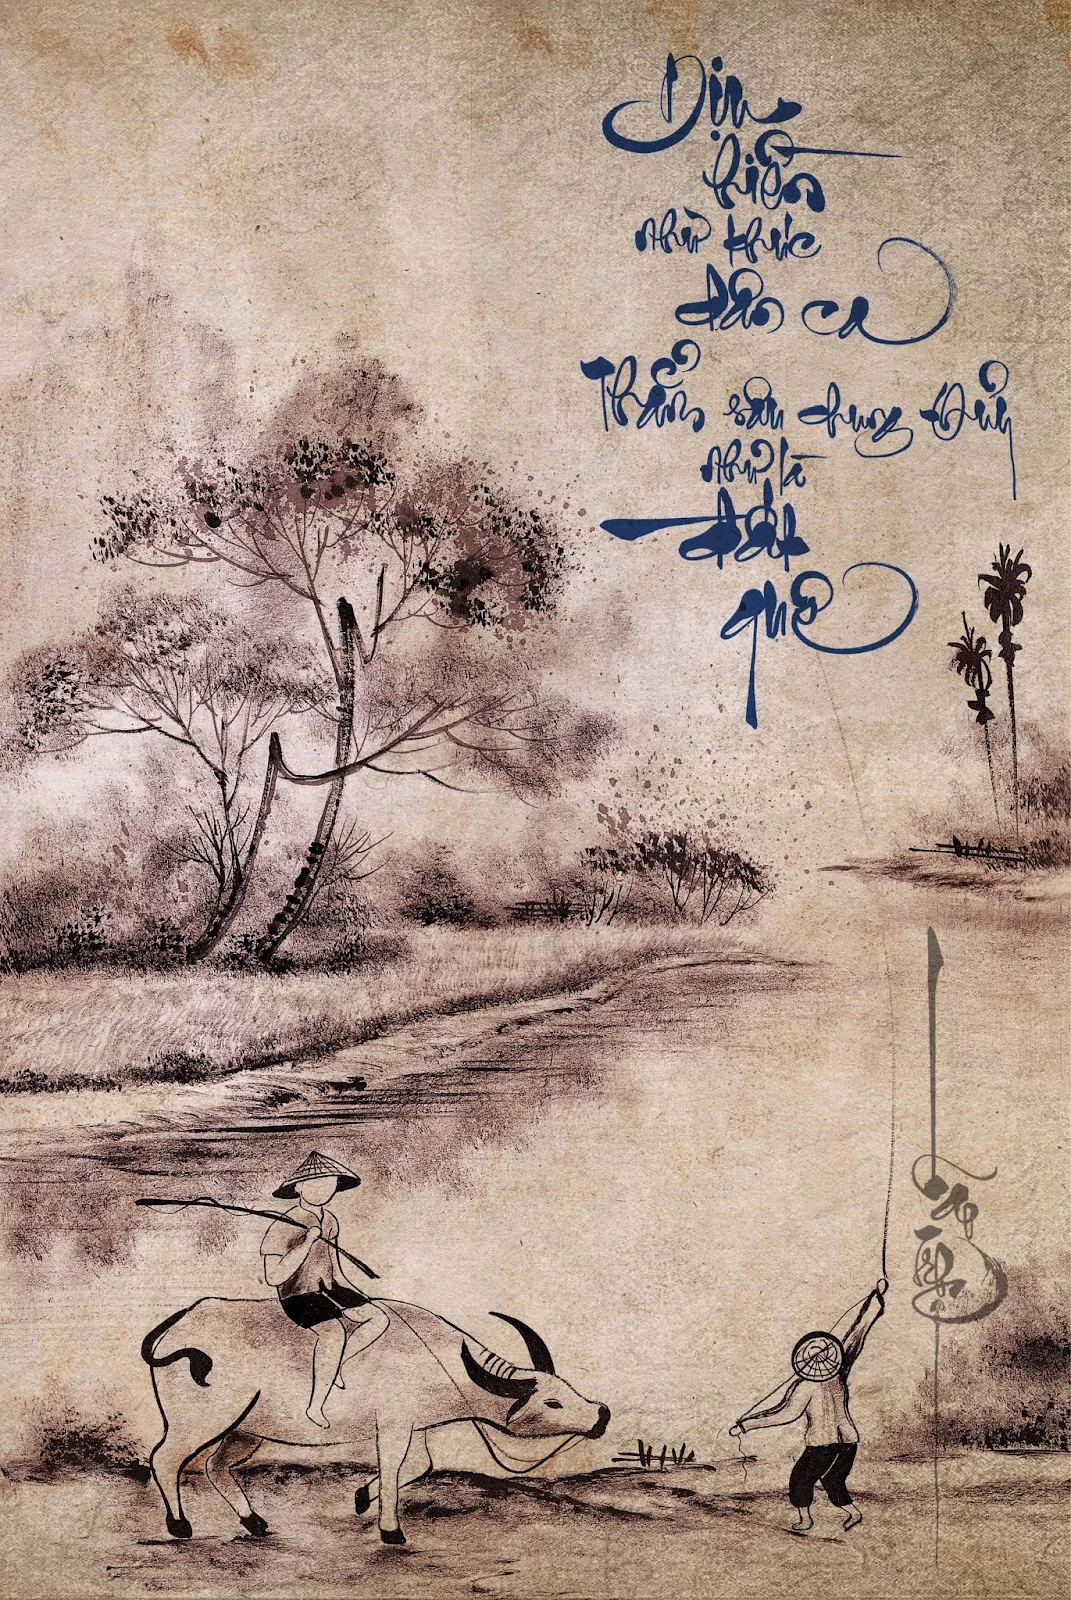 Dịu
hiền
như khúc
dân ca
Thẳm sâu chung thủy
như là
đất
quê